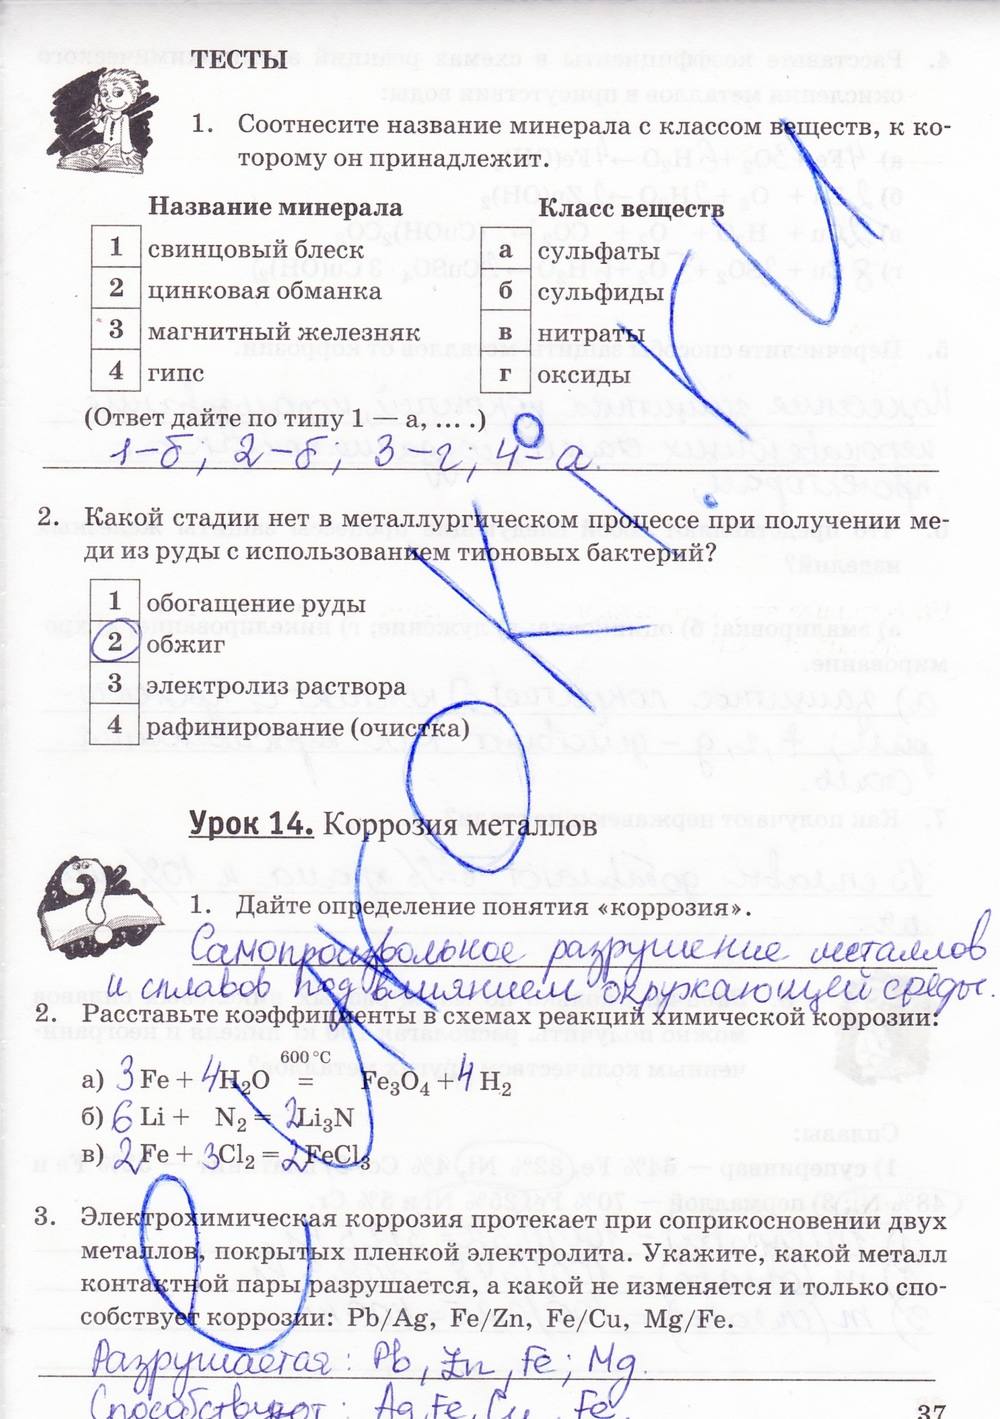 ТЕСТЫ
1. Соотнесите название минерала с классом веществ, к ко-
торому он принадлежит.
Название минерала Класс веществ
1 свинцовый блеск а сульфаты
2 цинковая обманка б сульфиды
3 магнитный железняк в нитраты
4 гипс г оксиды
(Ответ дайте по типу 1 — а, ... .)
1-б; 2-б; 3-г, 4-а.
2. Какой стадии нет в металлургическом процессе при получении ме-
ди из руды с использованием тионовых бактерий?
1 обогащение руды
2 обжиг
3 электролиз раствора
4 рафинирование (очистка)
Урок 14. Коррозия металлов
1. Дайте определение понятия «коррозия».
Самопроизвольное разрушение металлов
и сплавов под влиянием окружающей среды.
2. Расставьте коэффициенты в схемах реакций химической коррозии:
600 °C
а) 3 Fe + 4 H₂O = Fe₃O₄ + 4 H₂
б) 6 Li + N₂ = 2Li₃N
в) 2 Fe + 3Cl₂ = 2FeCl₃
3. Электрохимическая коррозия протекает при соприкосновении двух
металлов, покрытых пленкой электролита. Укажите, какой металл
контактной пары разрушается, а какой не изменяется и только спо-
собствует коррозии: Pb/Ag, Fe/Zn, Fe/Cu, Mg/Fe.
Разрушается: Pb, Zn, Fe; Mg.
Способствуют: Ag, Fe, Cu, Fe.
37